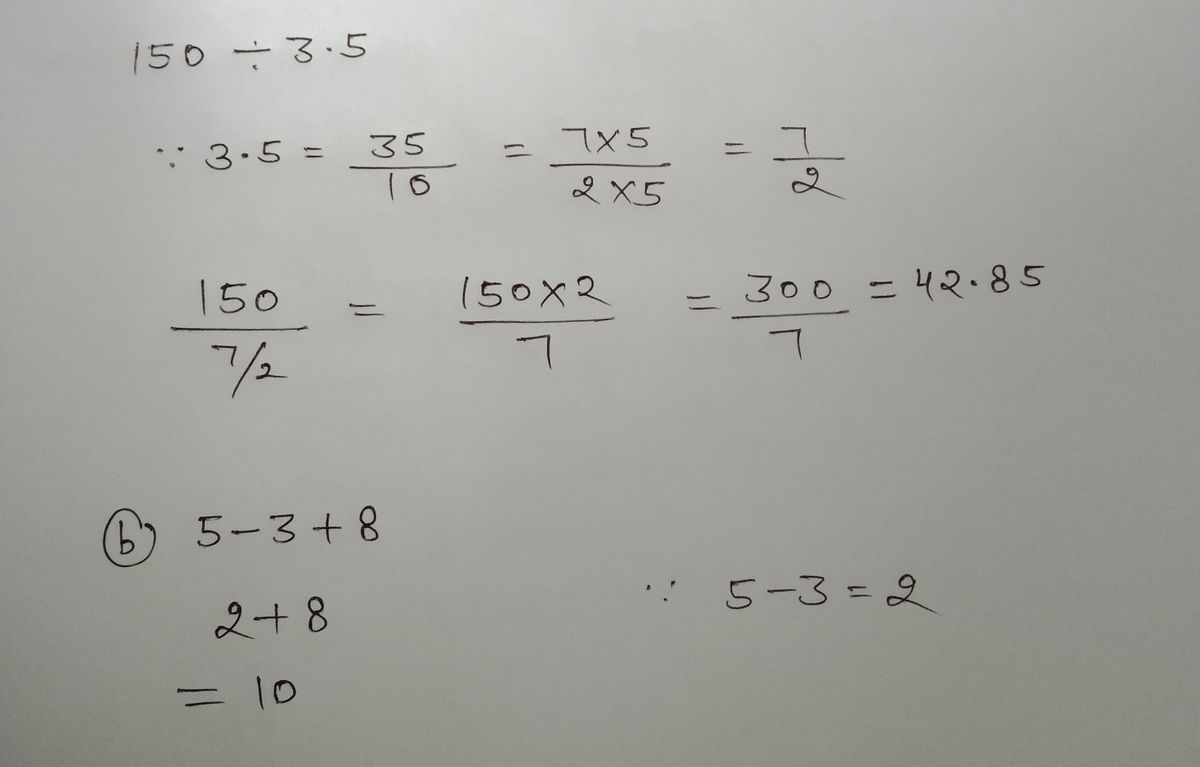 150 ÷ 3·5
∵ 3·5 = 35/10 = 7×5/2×5 = 7/2
150/7/2 = 150×2/7 = 300/7 = 42·85
(b) 5-3+8
2+8 ∵ 5-3=2
= 10